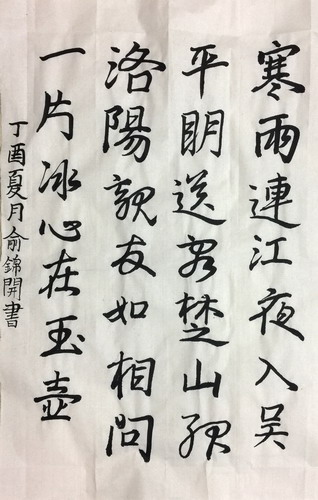 寒雨連江夜入吴
平明送客楚山孤
洛陽親友如相問
一片冰心在玉壺
丁酉夏月俞錦開書